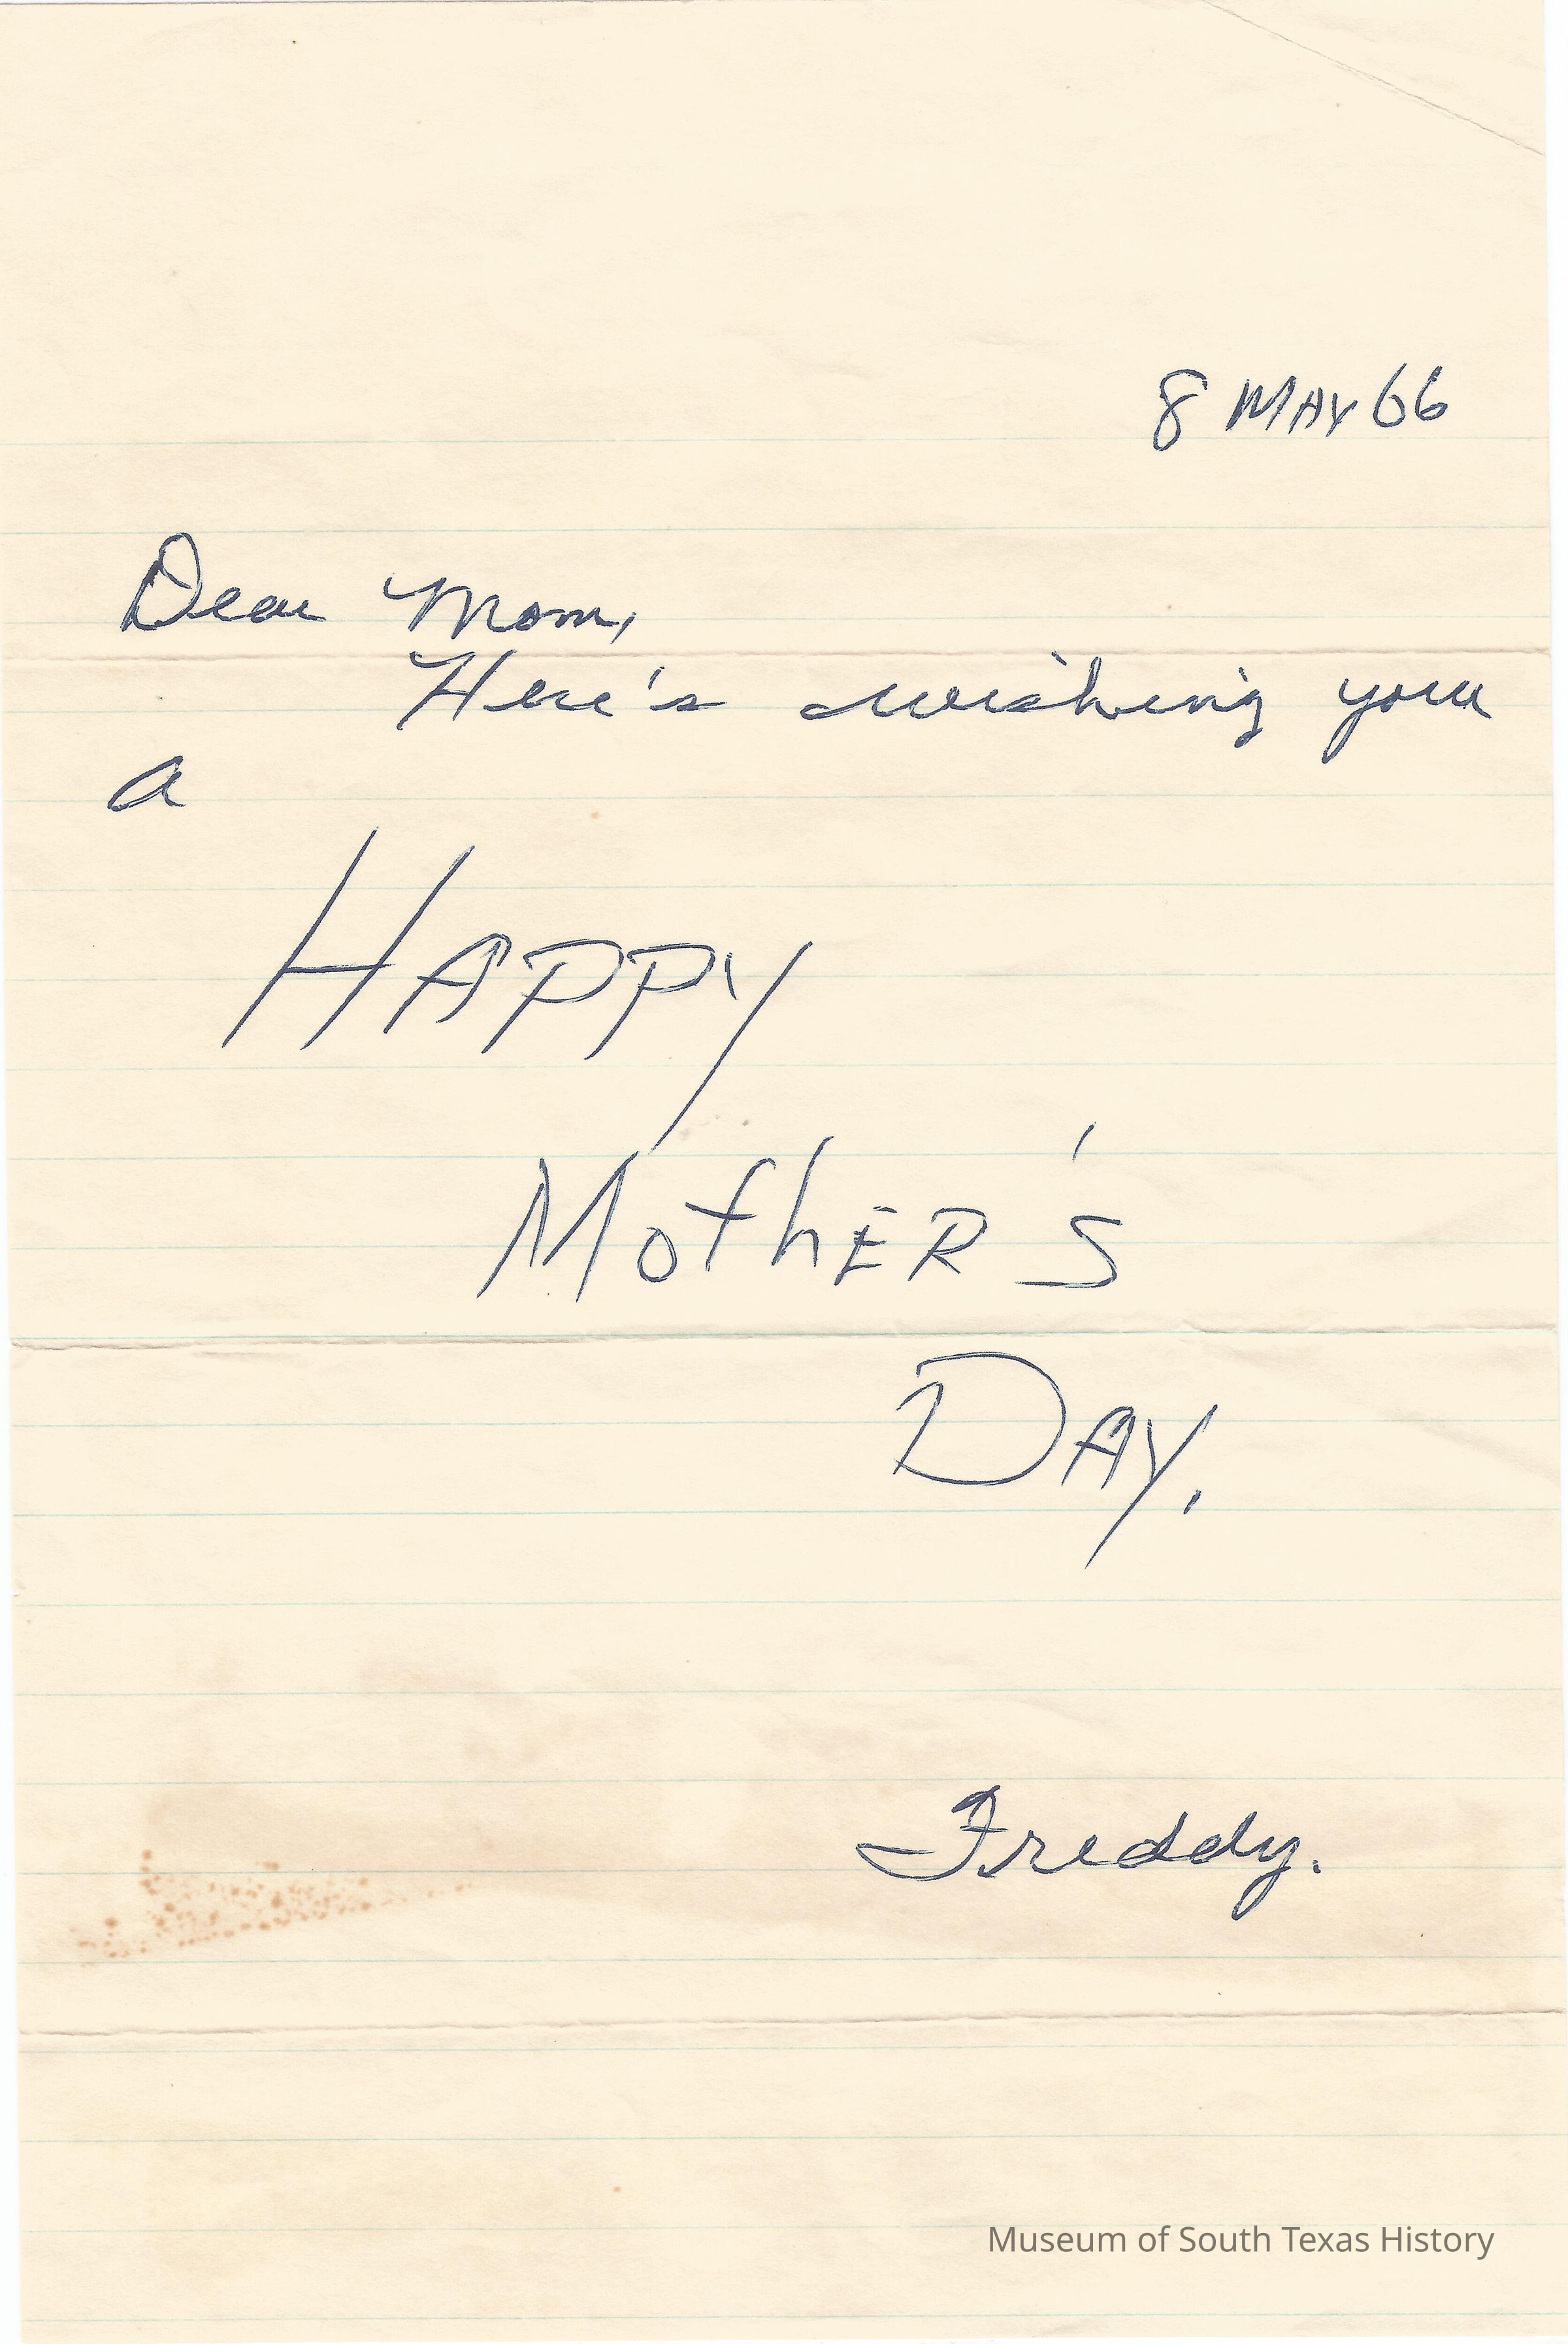 8 MAY 66
Dear Mom,
Here's wishing you
a
HAPPY
MothER'S
DAY.
Freddy.
Museum of South Texas History